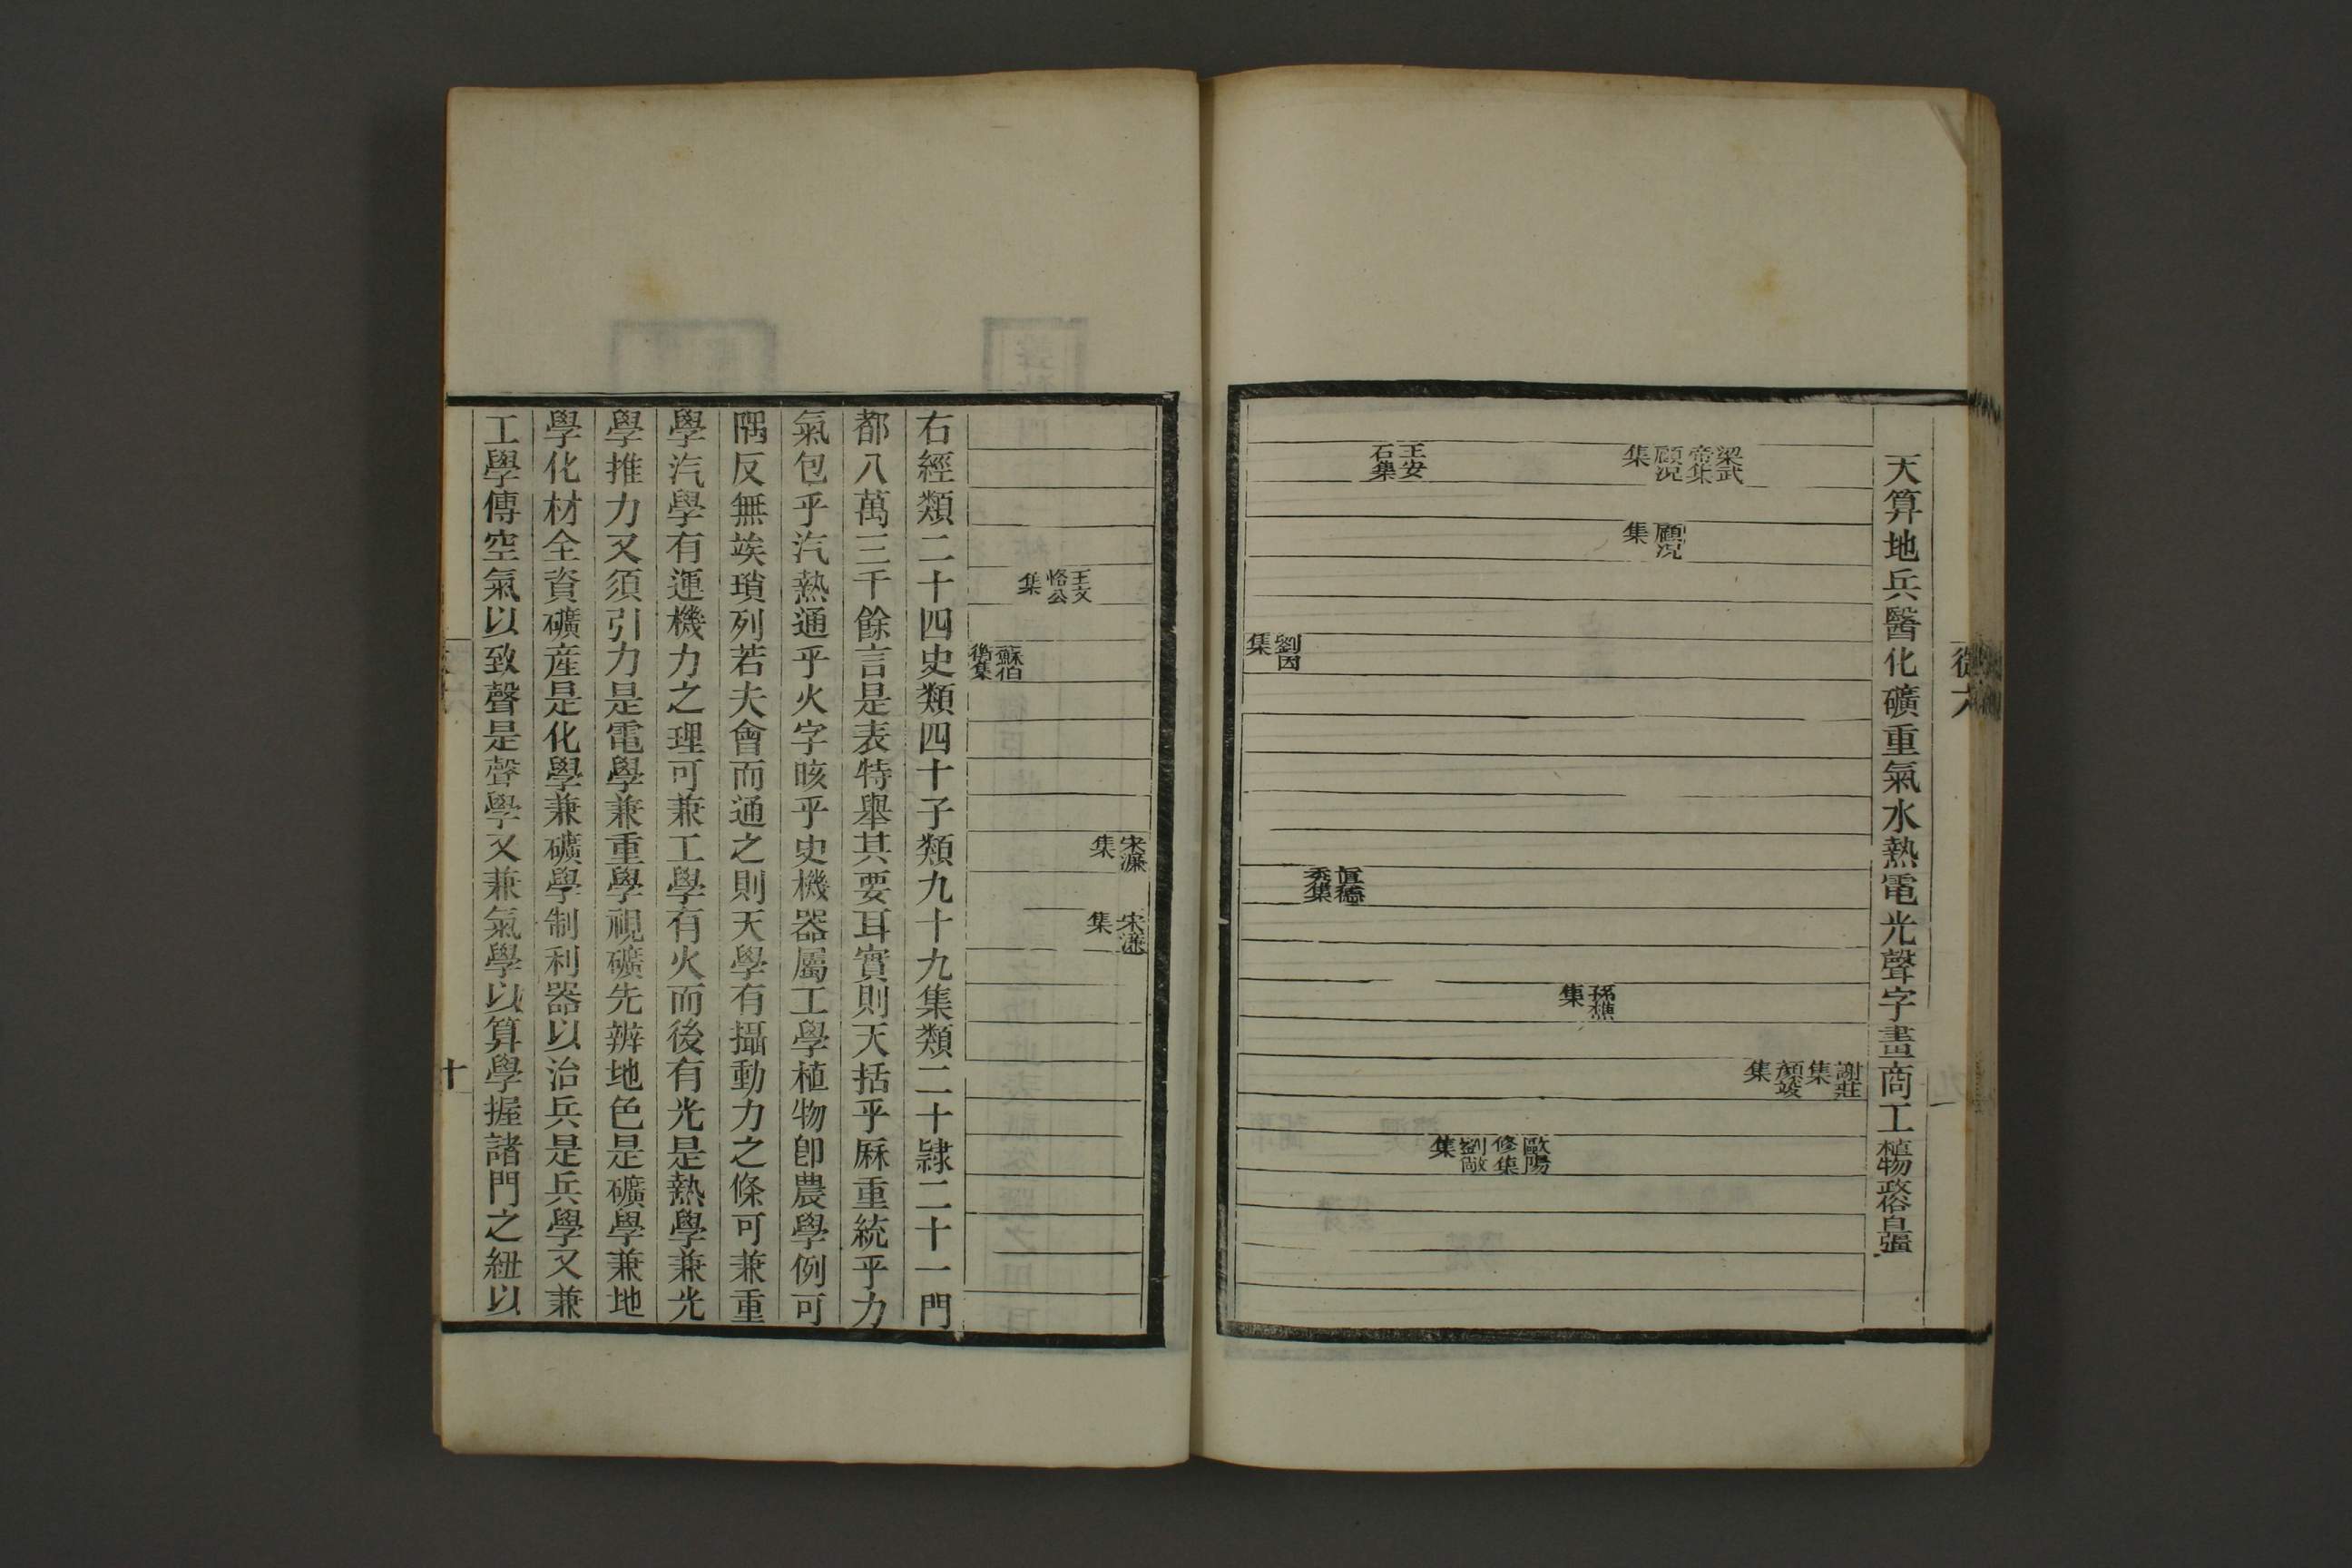 天算地兵醫化礦重氣水熱電光聲字畫商工植物政俗自强
謝莊
集
顏竣
集
梁武
帝集
顧況
集
顧況
集
孫樵
集
歐陽
修集
劉敞
集
王安
石集
眞德
秀集
劉因
集
宋濂
集
宋濂
集
王文
恪公
集
蘇伯
衡集
右經類二十四史類四十子類九十九集類二十隸二十一門
都八萬三千餘言是表特舉其要耳實則天括乎厤重統乎力
氣包乎汽熱通乎火字晐乎史機器屬工學植物卽農學例可
隅反無竢瑣列若夫會而通之則天學有攝動力之條可兼重
學汽學有運機力之理可兼工學有火而後有光是熱學兼光
學推力又須引力是電學兼重學視礦先辨地色是礦學兼地
學化材全資礦産是化學兼礦學制利器以治兵是兵學又兼
工學傳空氣以致聲是聲學又兼氣學以算學握諸門之紐以
十